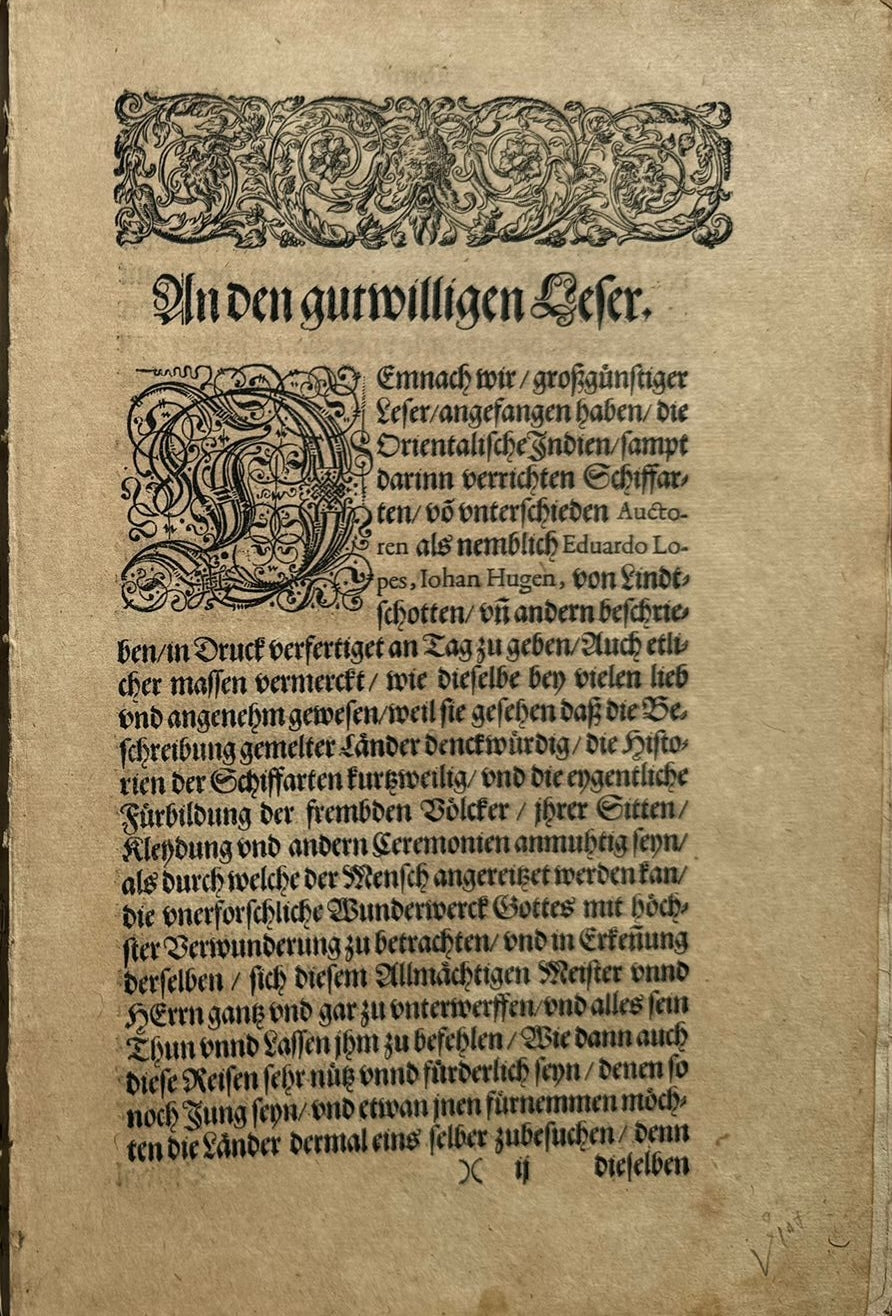 An den gutwilligen Leser.
DEmnach wir / großgünstiger
Leser/angefangen haben/ die
Orientalische Indien/sampt
darinn verrichten Schiffar-
ten/ võ vnterschieden Aucto-
ren als nemblich Eduardo Lo-
pes, Iohan Hugen, von Lindt-
schotten/ vñ andern beschrie-
ben/in Druck verfertiget an Tag zu geben/Auch etli-
cher massen vermerckt/ wie dieselbe bey vielen lieb
vnd angenehm gewesen/weil sie gesehen daß die Be-
schreibung gemelter Länder denckwürdig/ die Histo-
rien der Schiffarten kurtzweilig/ vnd die eygentliche
Fürbildung der frembden Völcker / jhrer Sitten/
Kleydung vnd andern Ceremonien anmuhtig seyn/
als durch welche der Mensch angereitzet werden kan/
die vnerforschliche Wunderwerck Gottes mit höch-
ster Verwunderung zu betrachten/ vnd in Erkeñung
derselben / sich diesem Allmächtigen Meister vnnd
HErrn gantz vnd gar zu vnterwerffen/vnd alles sein
Thun vnnd Lassen jhm zu befehlen / Wie dann auch
diese Reisen sehr nütz vnnd fürderlich seyn / denen so
noch Jung seyn/ vnd etwan jnen fürnemmen möch-
ten die Länder dermal eins selber zubesuchen/ denn
)( ij dieselben